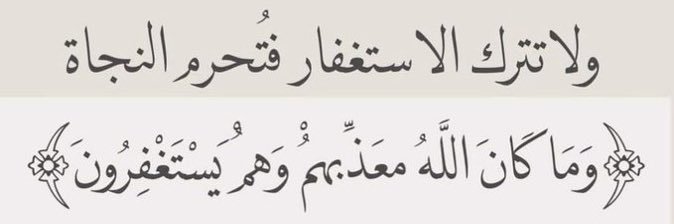 ولا تترك الاستغفار فتُحرم النجاة
﴿وَمَا كَانَ اللَّهُ معَذِّبهمْ وَهمْ يَسْتَغْفِرُونَ﴾